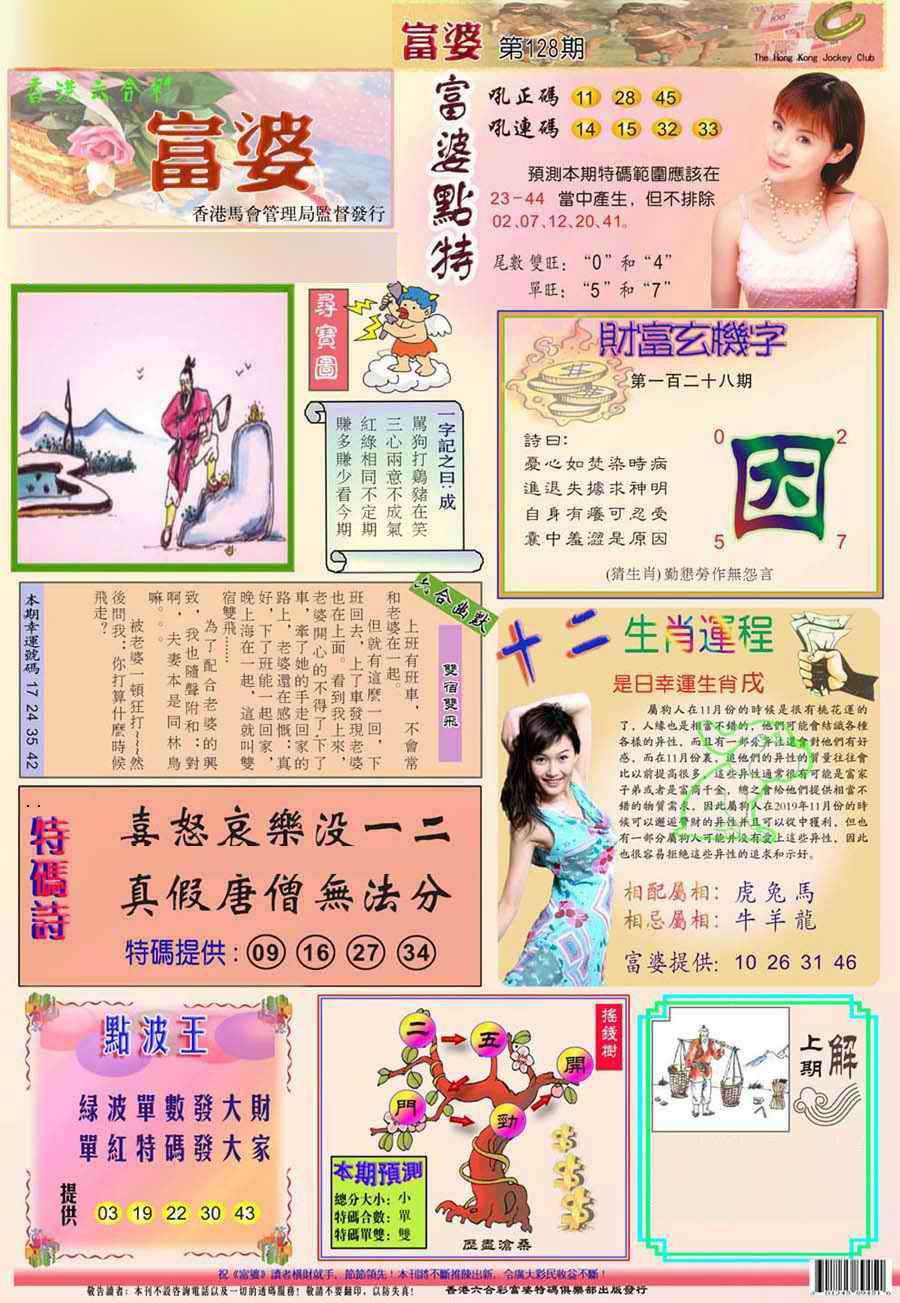 富婆 第128期
The Hong Kong Jockey Club
香港六合彩
富婆
香港馬會管理局監督發行
富婆點特
吼正碼 11 28 45
吼連碼 14 15 32 33
預測本期特碼範圍應該在
23-44 當中產生，但不排除
02、07、12、20、41。
尾數雙旺：“0”和“4”
單旺：“5”和“7”
尋寶圖
一字記之曰：成
罵狗打鷄豬在笑
三心兩意不成氣
紅綠相同不定期
賺多賺少看今期
財富玄機字
第一百二十八期
詩曰：
憂心如焚染時病
進退失據求神明
自身有癢可忍受
囊中羞澀是原因
0 2
因
5 7
(猜生肖)勤懇勞作無怨言
六合幽默
雙宿雙飛
上班有班車，不會常
和老婆在一起。
但就有這麼一回，下
班回去，上了車發現老婆
也在上面。看到我上來，
老婆開心的不得了，下了
車，牽了她的手走回家的
路上，老婆還在感慨：真
好，下了班能一起回家，
晚上海在一起，這就叫雙
宿雙飛……
為了配合老婆的興
致，我也隨聲附和：對
啊，夫妻本是同林鳥
嘛。。。
被老婆一頓狂打~~~然
後問我：你打算什麼時候
飛走？
本期幸運號碼 17 24 35 42
十二生肖運程
是日幸運生肖戌
屬狗人在11月份的時候是很有桃花運的
了，人緣也是相當不錯的，他們可能會結識各種
各樣的异性，而且有一部分异性還會對他們有好
感，而在11月份裏，追他們的异性的質量往往會
比以前提高很多，這些异性通常很有可能是富家
子弟或者是富商千金，總之會給他們提供相當不
錯的物質需求，因此屬狗人在2019年11月份的時
候可以邂逅多財的异性并且可以從中獲利，但也
有一部分屬狗人可能并沒有愛上這些异性，因此
也很容易拒絕這些异性的追求和示好。
相配屬相：虎兔馬
相忌屬相：牛羊龍
富婆提供：10 26 31 46
特碼詩
喜怒哀樂没一二
真假唐僧無法分
特碼提供：09 16 27 34
點波王
緑波單數發大財
單紅特碼發大家
提供 03 19 22 30 43
搖錢樹
二 五 開
門 勁
本期預測
總分大小：小
特碼合數：單
特碼單雙：雙
歷盡滄桑
上期解
祝《富婆》讀者橫財就手，節節領先！本刊將不斷推陳出新，令廣大彩民收益不斷！
敬告讀者：本刊不設咨詢電話以及一切的透碼服務！敬請不要翻印，以防失真！
香港六合彩富婆特碼俱樂部出版發行